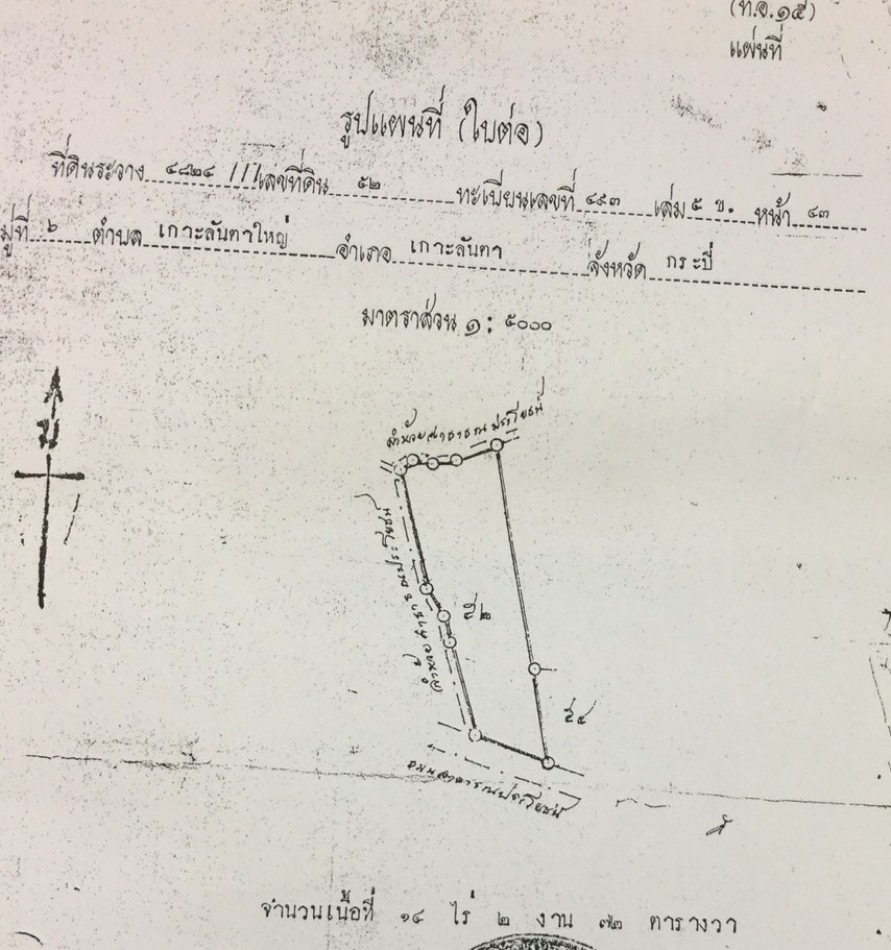 (ท.อ.๑๕)
แผ่นที่
รูปแผนที่ (ใบต่อ)
ที่ดินระวาง ๔๘๒๔ III เลขที่ดิน ๕๒ ทะเบียนเลขที่ ๔๙๓ เล่ม ๕ ข. หน้า ๔๓
หมู่ที่ ๖ ตำบล เกาะลันตาใหญ่ อำเภอ เกาะลันตา จังหวัด กระบี่
มาตราส่วน ๑ : ๕๐๐๐
น
ลำห้วยสาธารณประโยชน์
ลำห้วยสาธารณประโยชน์
ที่ ๒
ถนนสาธารณประโยชน์
จำนวนเนื้อที่ ๑๔ ไร่ ๒ งาน ๗๒ ตารางวา